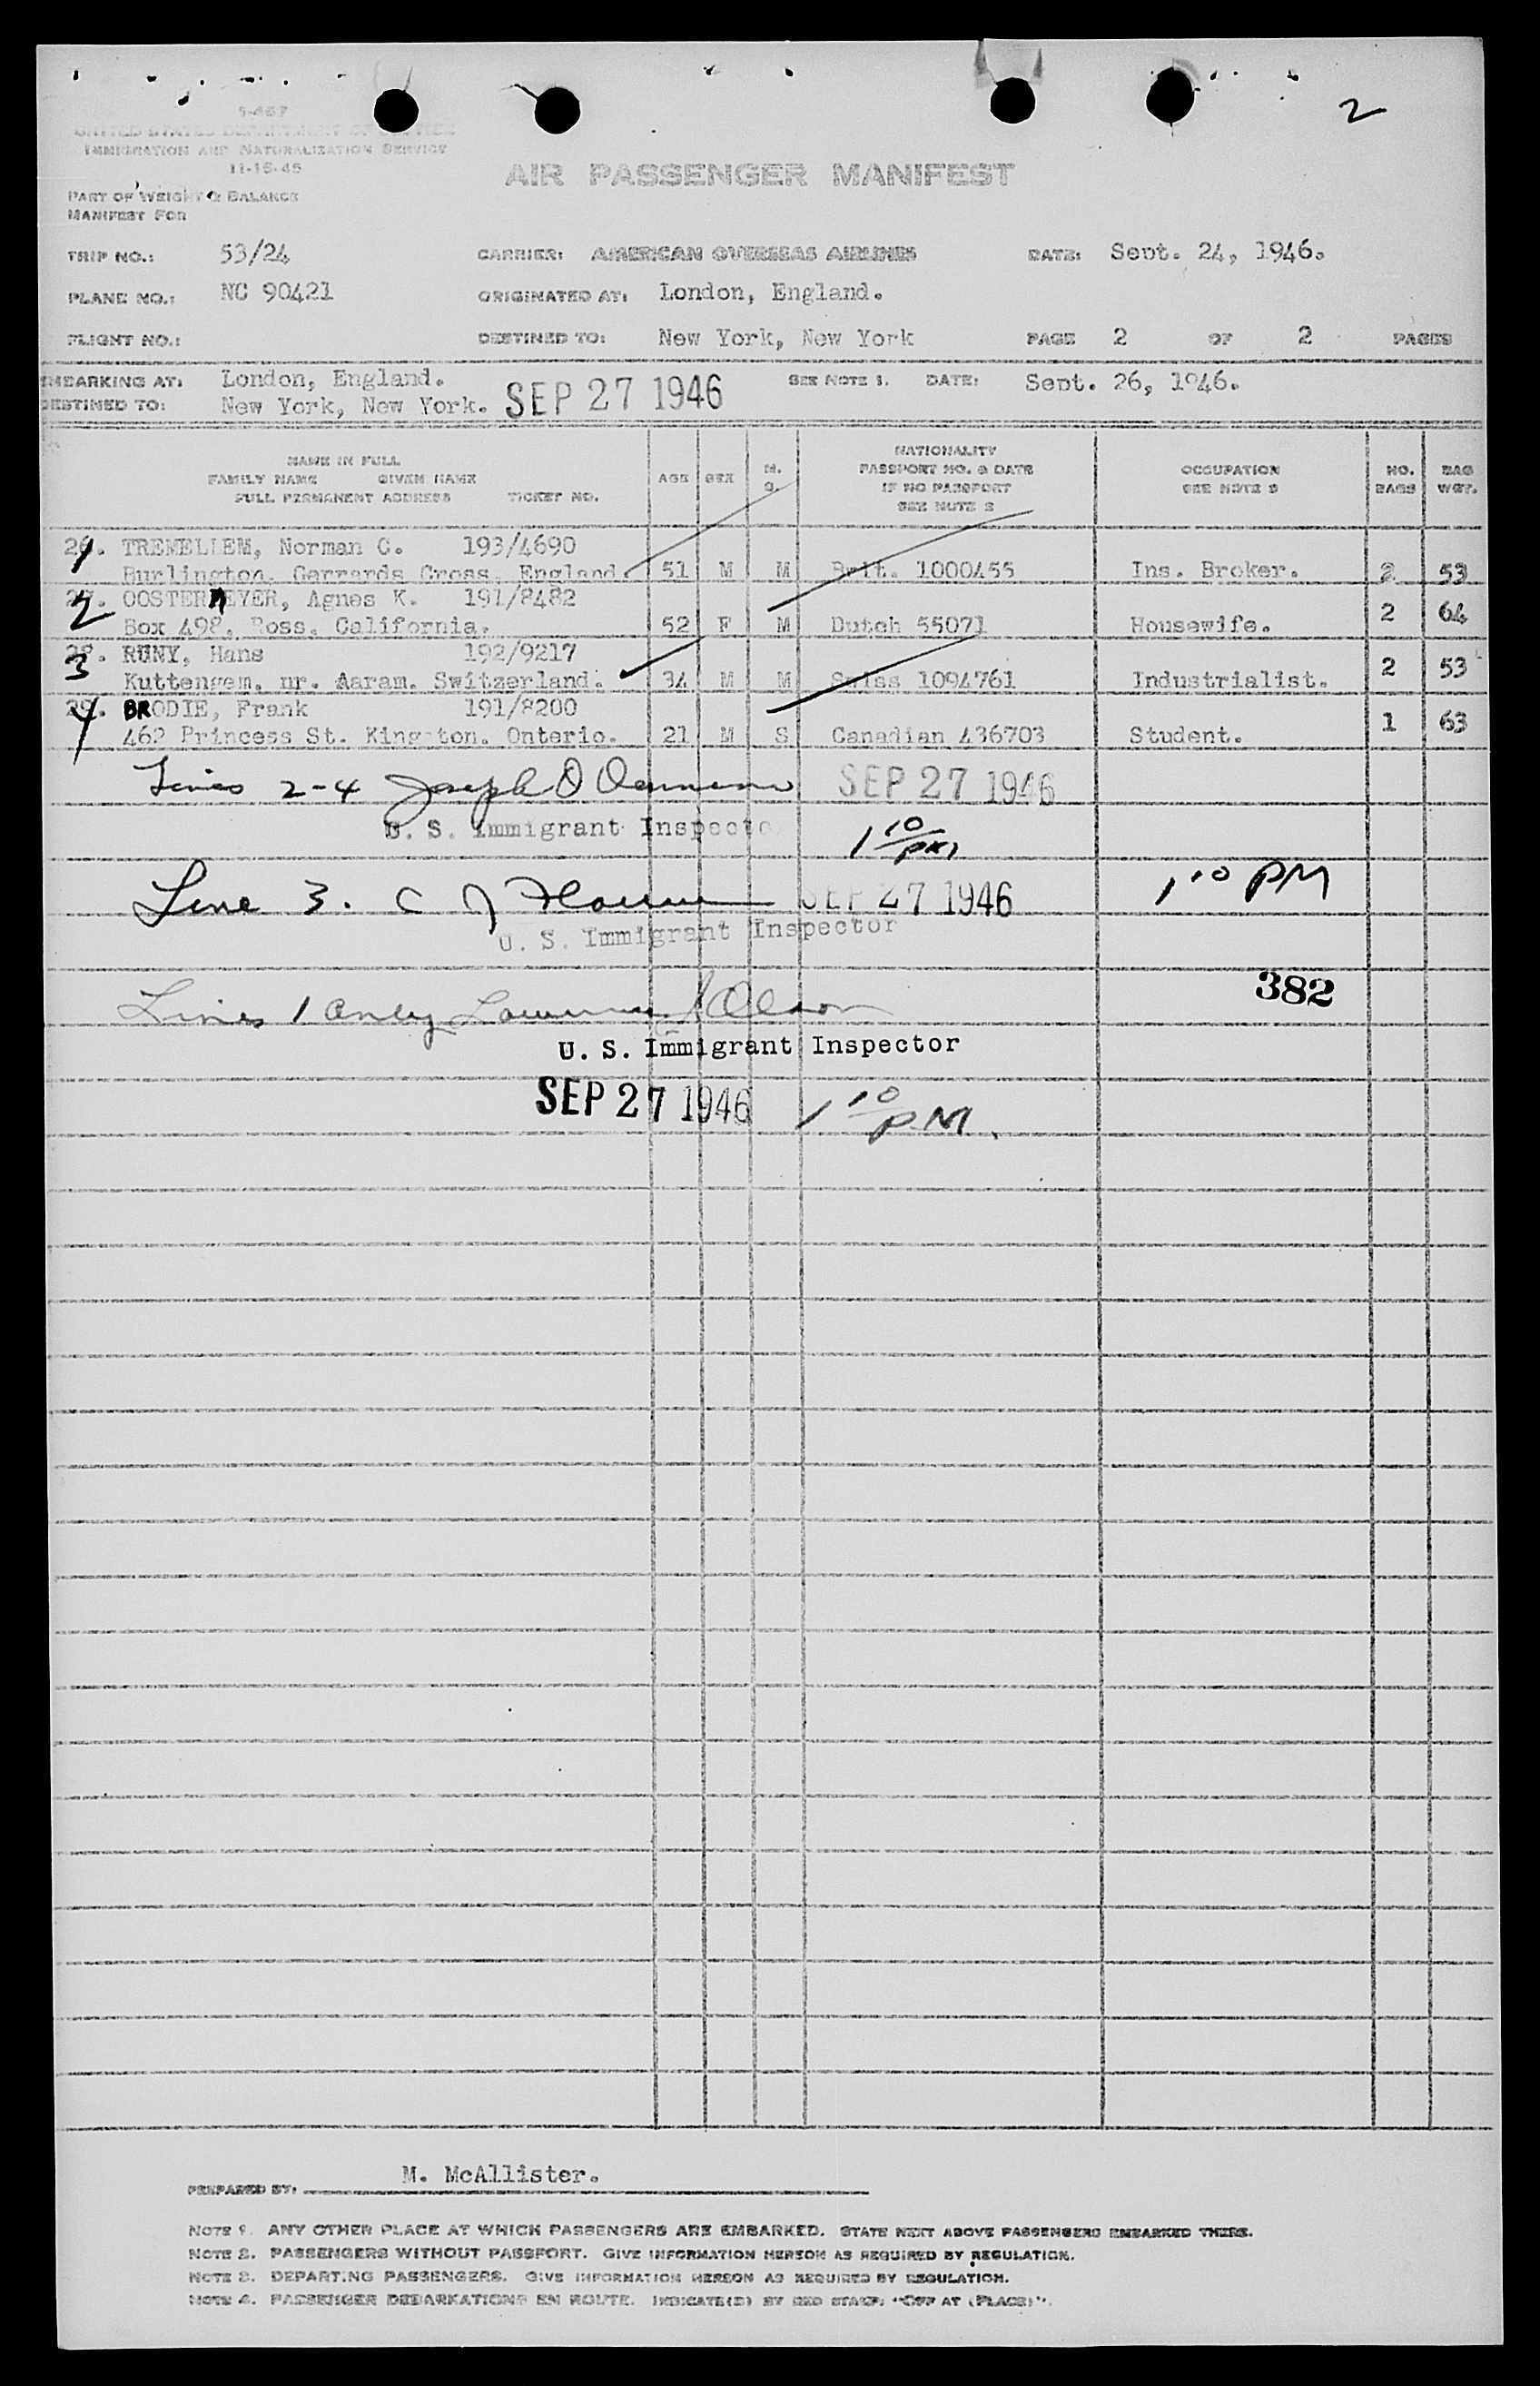 2
I-467
UNITED STATES DEPARTMENT OF JUSTICE
IMMIGRATION AND NATURALIZATION SERVICE
11-15-45
AIR PASSENGER MANIFEST
PART OF WEIGHT & BALANCE
MANIFEST FOR
TRIP NO.: 53/24 CARRIER: AMERICAN OVERSEAS AIRLINES DATE: Sept. 24, 1946.
PLANE NO.: NC 90421 ORIGINATED AT: London, England.
FLIGHT NO.: DESTINED TO: New York, New York PAGE 2 OF 2 PAGES
EMBARKING AT: London, England. SEE NOTE 1. DATE: Sept. 26, 1946.
DESTINED TO: New York, New York. SEP 27 1946
NAME IN FULL
FAMILY NAME GIVEN NAME
FULL PERMANENT ADDRESS TICKET NO.
AGE SEX M. S.
NATIONALITY
PASSPORT NO. & DATE
IF NO PASSPORT
SEE NOTE 2
OCCUPATION
SEE NOTE 3
NO. BAGS
BAG WGT.
26. 1 TREMELLEM, Norman C. 193/4690
Burlington, Gerrards Cross, England. 51 M M Brit. 1000455 Ins. Broker. 2 53
27. 2 OOSTERMEYER, Agnes K. 191/8482
Box 498, Ross, California. 52 F M Dutch 55071 Housewife. 2 64
28. 3 RUNY, Hans 192/9217
Kuttengem, nr. Aaram, Switzerland. 34 M M Swiss 1094761 Industrialist. 2 53
29. 4 BRODIE, Frank 191/8200
462 Princess St. Kingston. Onterio. 21 M S Canadian A36703 Student. 1 63
Lines 2-4 Joseph D SEP 27 1946
U. S. Immigrant Inspector 1 10 PM
Line 3. C J SEP 27 1946 1 10 PM
U. S. Immigrant Inspector
382
Lines 1 only Lawrence Olson
U. S. Immigrant Inspector
SEP 27 1946 1 10 P.M.
M. McAllister.
PREPARED BY:
NOTE 1. ANY OTHER PLACE AT WHICH PASSENGERS ARE EMBARKED. STATE NEXT ABOVE PASSENGERS EMBARKED THERE.
NOTE 2. PASSENGERS WITHOUT PASSPORT. GIVE INFORMATION HEREON AS REQUIRED BY REGULATION.
NOTE 3. DEPARTING PASSENGERS. GIVE INFORMATION HEREON AS REQUIRED BY REGULATION.
NOTE 4. PASSENGER DEBARKATIONS EN ROUTE. INDICATE(D) BY RED STAMP: "OFF AT (PLACE)".